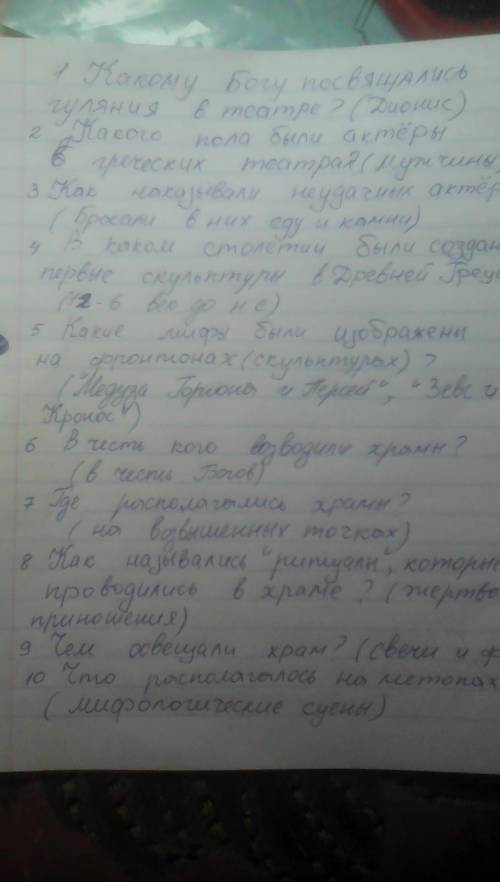 1 Какому Богу посвящались
гуляния в театре? (Дионис)
2 Какого пола были актёры
в греческих театрах? (Мужчины)
3 Как наказывали неудачных актёр
(Бросали в них еду и камни)
4 В каком столетии были создан
первые скульптуры в Древней Греци
(12-6 век до н е)
5 Какие мифы были изображены
на фронтонах (скульптурах)?
("Медуза Горгона и Персей", "Зевс и
Кронос")
6 В честь кого возводили храмы?
(в честь Богов)
7 Где располагались храмы?
(на возвышенных точках)
8 Как назывались "ритуалы", которые
проводились в храме? (жертво
приношения)
9 Чем освещали храм? (свечи и ф
10 Что располагалось на метопах
(мифологические сцены)